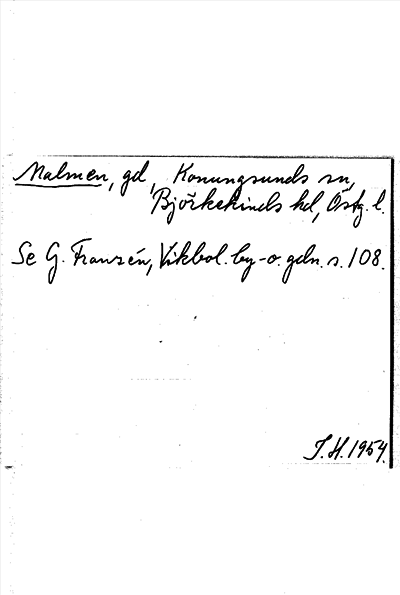 Malmen, gd, Konungsunds sn,
Björkekinds hd, Östg. l.
Se G. Franzén, Vikbol. by- o. gdn. s. 108.
J. H. 1954.